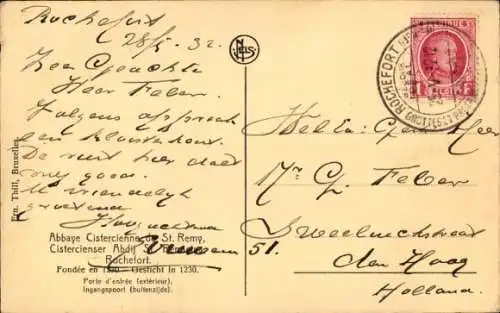 Rochefort
28/5 '32.
Zeer Geachte
Heer Feber.
Volgens afspraak
een
De rust hier doet
mij goed.
U vriendelijk
groetend
Ern. Thill, Bruxelles
NELS
Abbaye Cistercienne de St. Remy,
Cistercienser Abdij St.
Rochefort.
Fondée en 1230 — Gesticht in 1230.
Porte d'entrée (extérieur),
Ingangspoort (buitenzijde).
ROCHEFORT
Heer
Mr Ch. Feber
Sweelinckstraat
51.
den Haag
Holland.